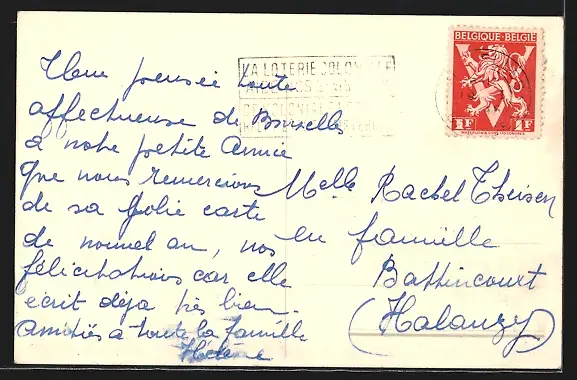 Une pensée toute
affectueuse de Bruxelles
à notre petite Amie
que nous remercions
de sa jolie carte
de nouvel an, nos
félicitations car elle
écrit déja très bien.
Amitiés à toute la famille
Hélène
LA LOTERIE COLONIALE
BELGIQUE-BELGIE
1F 1F
Melle Rachel Theisen
en famille
Battincourt
(Halanzy)